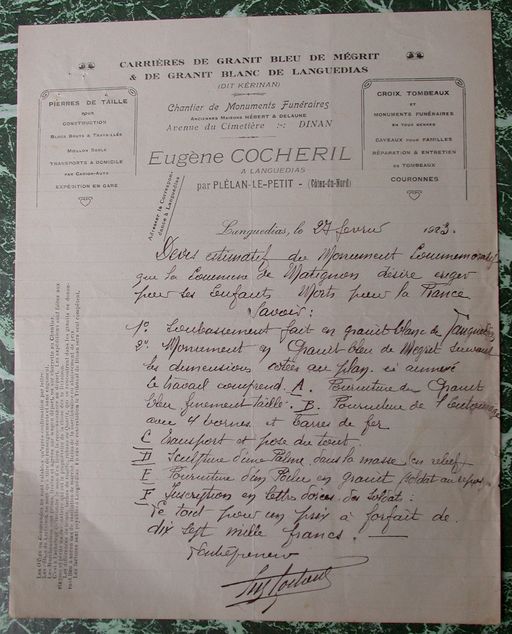 CARRIÈRES DE GRANIT BLEU DE MÉGRIT
& DE GRANIT BLANC DE LANGUEDIAS
(DIT KÉRINAN)
PIERRES DE TAILLE
POUR
CONSTRUCTION
BLOCS BRUTS & TRAVAILLÉS
MOELLON SMILLÉ
TRANSPORTS A DOMICILE
PAR CAMION-AUTO
EXPÉDITION EN GARE
Chantier de Monuments Funéraires
ANCIENNES MAISONS HÉBERT & DELAUNE
Avenue du Cimetière :-: DINAN
Eugène COCHERIL
A LANGUEDIAS
par PLÉLAN-LE-PETIT - (Côtes-du-Nord)
CROIX, TOMBEAUX
ET
MONUMENTS FUNÉRAIRES
EN TOUS GENRES
CAVEAUX POUR FAMILLES
RÉPARATION & ENTRETIEN
DE TOMBEAUX
COURONNES
Adresser la Correspon-
dance à Languédias
Languédias, le 27 février 1923.
Devis estimatif du Monument Commemoratif
que la Commune de Matignon désire eriger
pour ses Enfants Morts pour la France
Savoir :
1º Soubassement fait en granit blanc de Languédias
2º Monument en Granit bleu de Mégrit suivant
les dimensions cotées au plan ci annexé
le travail comprend. A. Fourniture du Granit
bleu finement taillé. B. Fourniture de l'Entourage
avec 4 bornes et barres de fer
C Transport et pose du tout.
D Sculpture d'une Palme dans la masse en relief
E Fourniture d'un Poilu en granit soldat au repos
F Inscription en lettre dorées du soldat :
Le tout pour un prix à forfait de
dix sept mille francs.
l'Entrepreneur